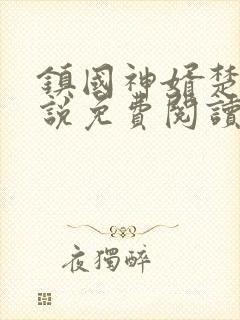 鎮國神婿楚
說免費閱讀
夜獨醉